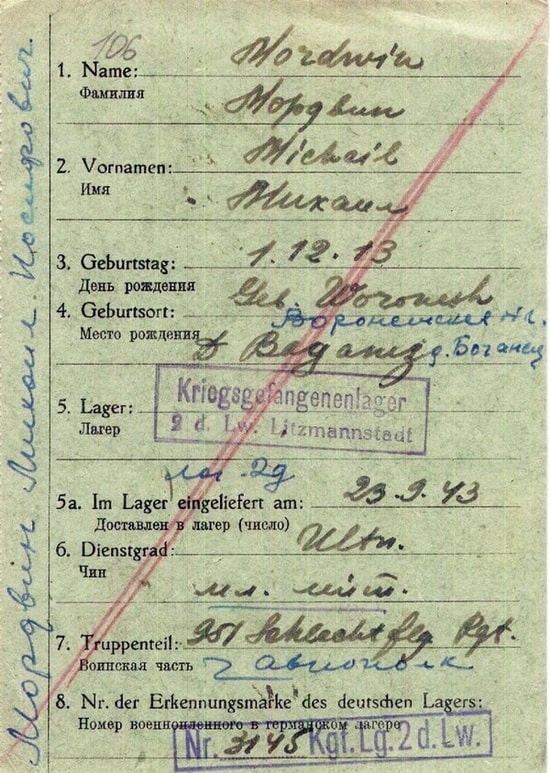 106
1. Name: Mordwin
Фамилия Мордвин
2. Vornamen: Michail
Имя Михаил
3. Geburtstag: 1.12.13
День рождения
4. Geburtsort: Geb. Woronesh
Место рождения Воронежская
D Baganez д. Боганец
5. Lager: Kriegsgefangenenlager
Лагер 2 d. Lw. Litzmannstadt
лаг. 2д
5a. Im Lager eingeliefert am: 23.9.43
Доставлен в лагер (число)
6. Dienstgrad: Ultn.
Чин мл. лейт.
7. Truppenteil: 951 Schlachtflg Rgt.
Воинская часть авиополк
8. Nr. der Erkennungsmarke des deutschen Lagers:
Номер военнопленного в германском лагере
Nr. 3145 Kgf. Lg. 2 d. Lw.
Мордвин Михаил Иосифович.